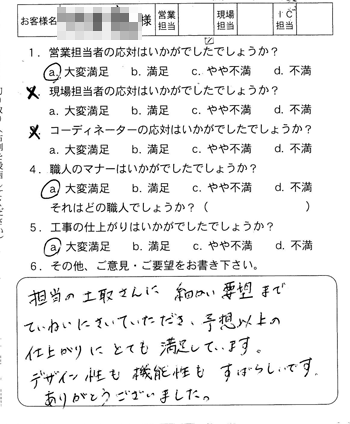 お客様名 様 営業担当 現場担当 IC担当
1．営業担当者の応対はいかがでしたでしょうか？
a. 大変満足 b. 満足 c. やや不満 d. 不満
現場担当者の応対はいかがでしたでしょうか？
a. 大変満足 b. 満足 c. やや不満 d. 不満
コーディネーターの応対はいかがでしたでしょうか？
a. 大変満足 b. 満足 c. やや不満 d. 不満
4．職人のマナーはいかがでしたでしょうか？
a. 大変満足 b. 満足 c. やや不満 d. 不満
それはどの職人でしょうか？（ ）
5．工事の仕上がりはいかがでしたでしょうか？
a. 大変満足 b. 満足 c. やや不満 d. 不満
6．その他、ご意見・ご要望をお書き下さい。
担当の土取さんに 細かい要望まで
ていねいにきいていただき、予想以上の
仕上がりにとても満足しています。
デザイン性も機能性もすばらしいです。
ありがとうございました。